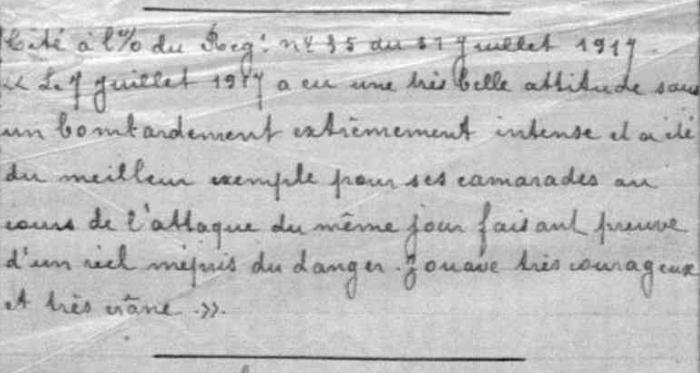 Cité à l'% du Regt nº 35 du 31 juillet 1917.
« Le 7 juillet 1917 a eu une très belle attitude sous
un bombardement extrêmement intense et a été
du meilleur exemple pour ses camarades au
cours de l'attaque du même jour faisant preuve
d'un réel mépris du danger. Zouave très courageux
et très crâne .».